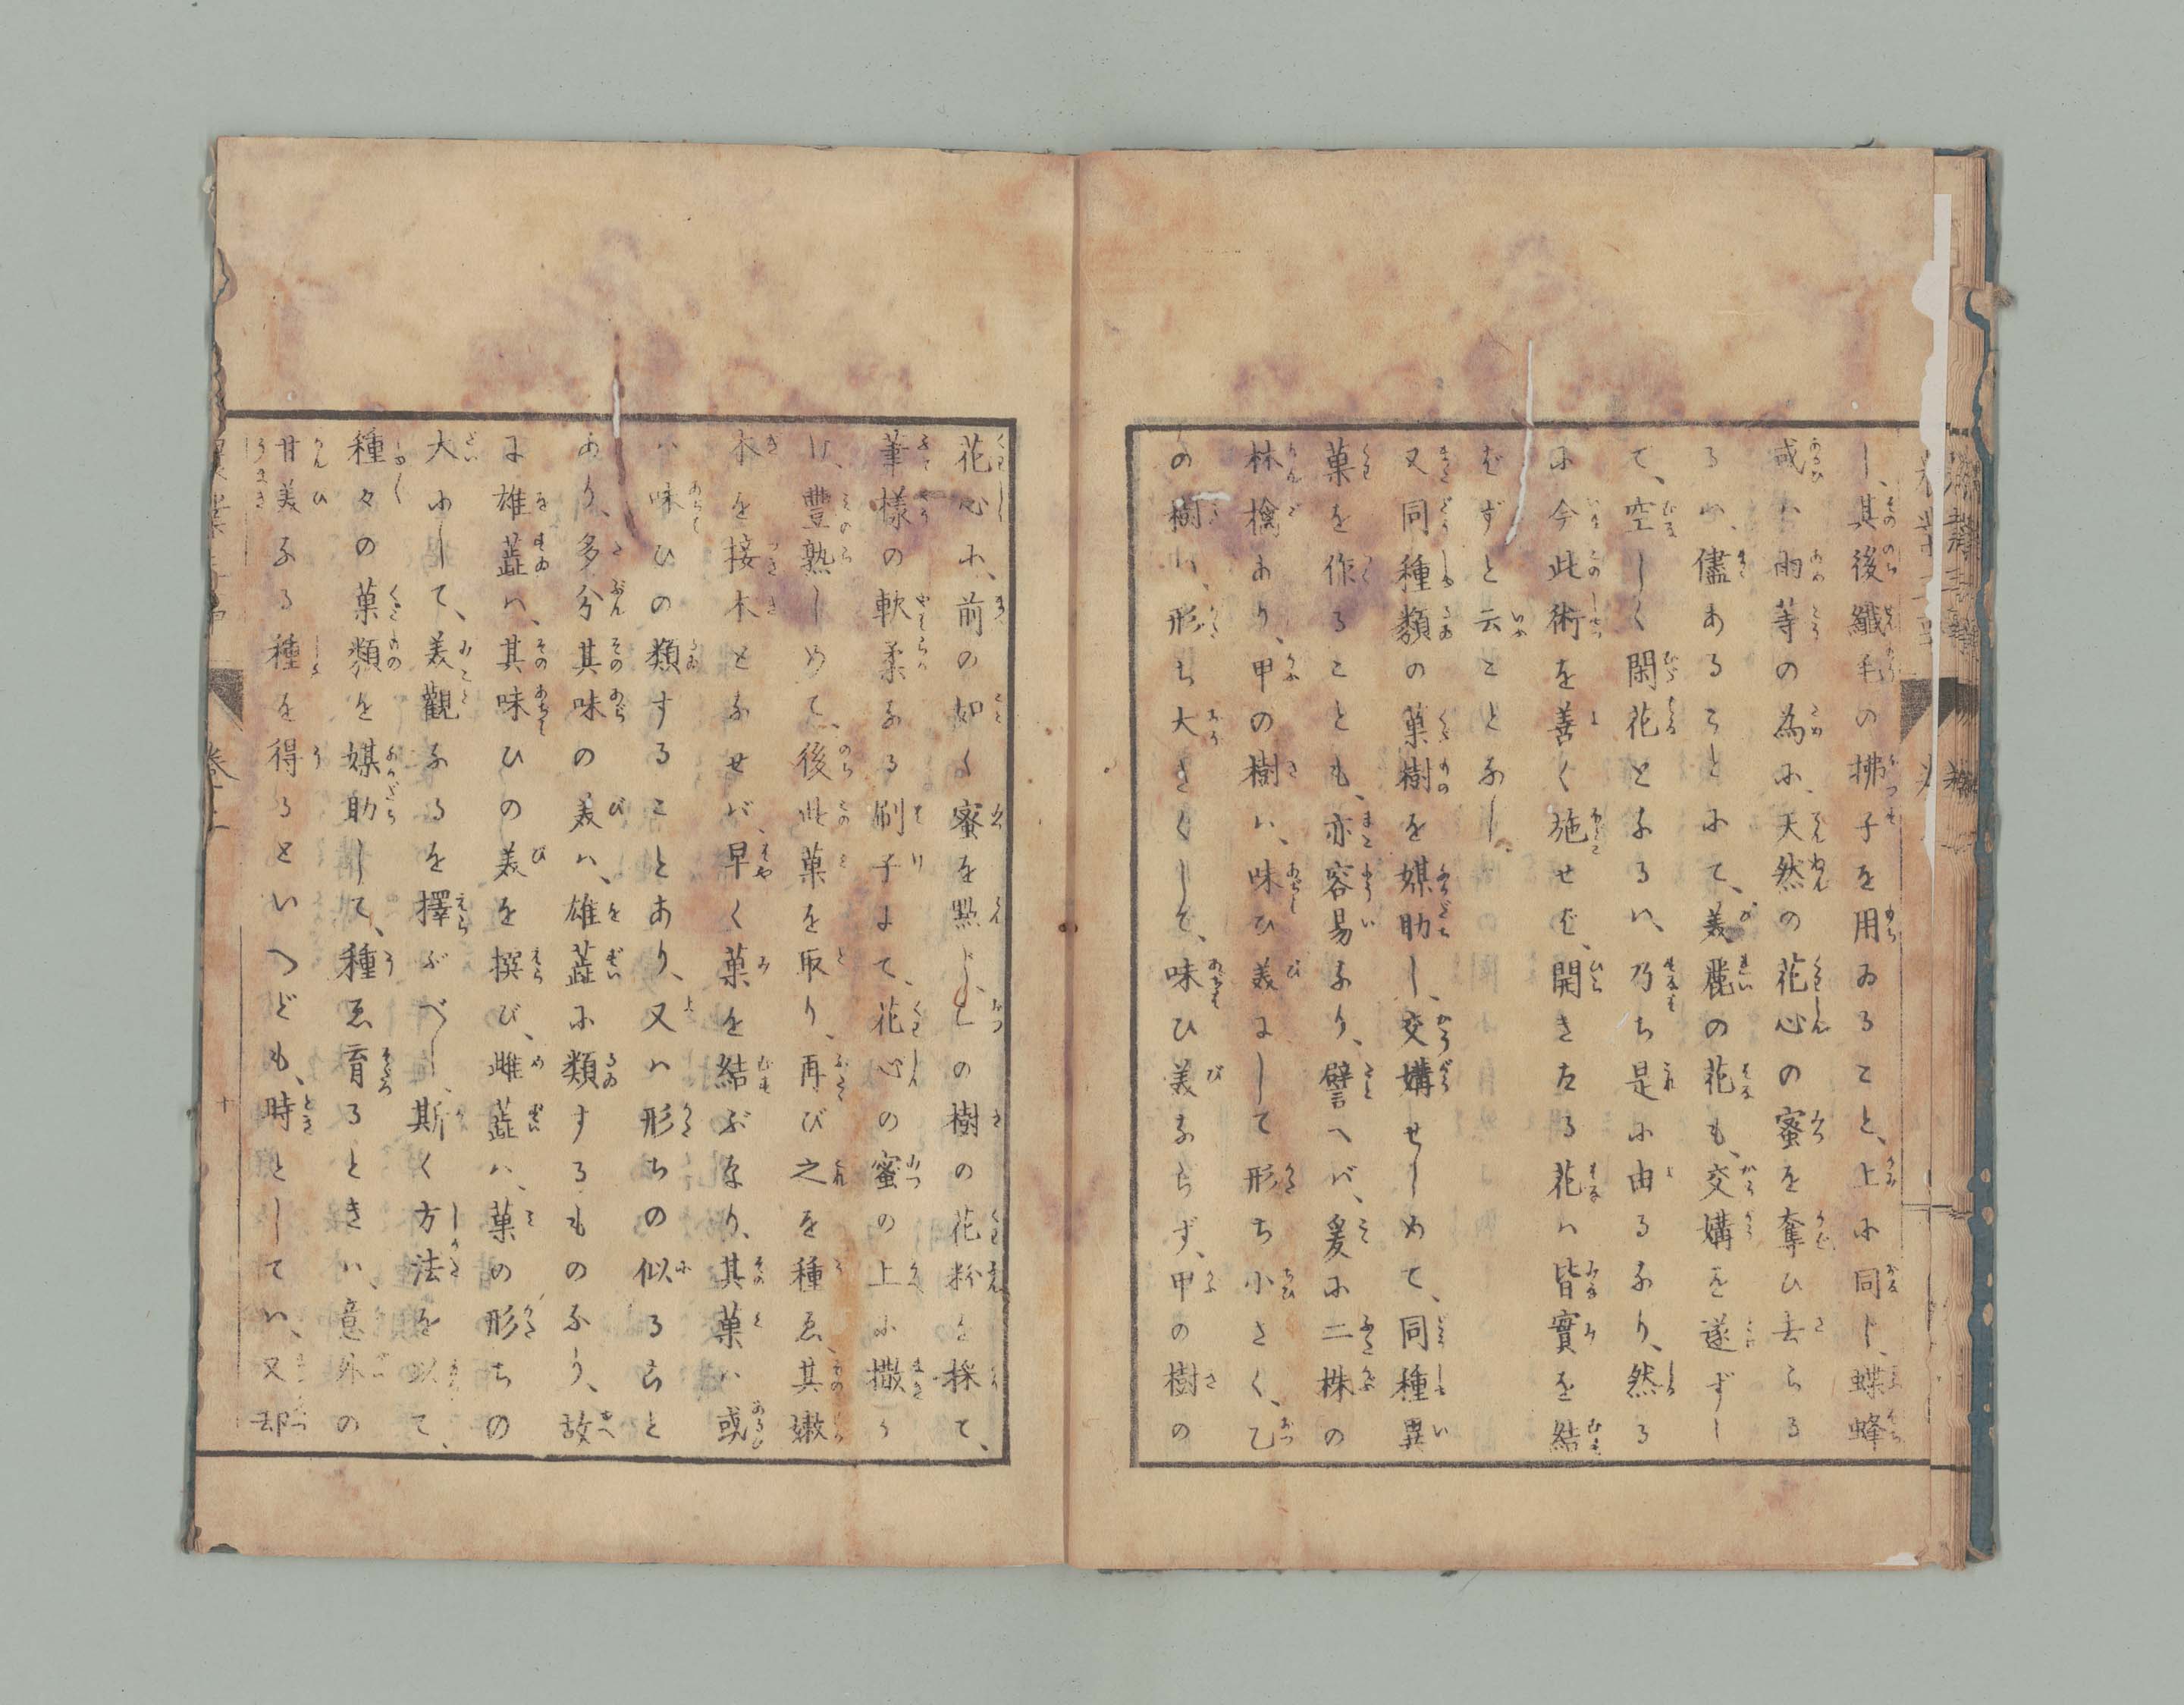 し、其後纎毛の拂子を用ゐること、上に同じ、蝶蜂
或ハ雨等の為に、天然の花心の蜜を奪ひ去らる
るハ、儘あることにて、美麗の花も、交媾を遂ずし
て、空しく閑花となるハ、乃ち是に由るなり、然る
に今此術を善く施せば、開きたる花ハ皆實を結
ばずと云ことなし
又同種類の菓樹を媒助し、交媾せしめて、同種異
菓を作ることも、亦容易なり、譬へバ、爰に二株の
林檎あり、甲の樹ハ、味ひ美にして形ち小さく、乙
の樹ハ、形ち大きくして、味ひ美ならず、甲の樹の
花心に、前の如く蜜を點じ、乙の樹の花粉を採て、
筆様の軟柔なる刷子にて、花心の蜜の上に撒り
け、豐熟しめて、後此菓を取り、再び之を種ゑ、其嫩
木を接木となせバ、早く菓を結ぶなり、其菓ハ或
ハ味ひの類することあり、又ハ形ちの似ること
あり、多分其味の美ハ、雄蕋に類するものなり、故
に雄蕋ハ、其味ひの美を撰び、雌蕋ハ、菓の形ちの
大にして、美觀なるを擇ぶべし、斯く方法を以て、
種々の菓類を媒助して、種ゑ育るときハ、意外の
甘美なる種を得るといへども、時としてハ、又却